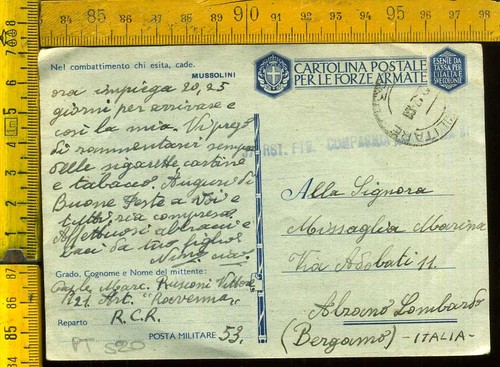 Nel combattimento chi esita, cade.
MUSSOLINI
ora impiega 20, 25
giorni per arrivare e
così la mia. Vi prego
di rammentarvi sempre
delle sigarette cartine
e tabacco. Auguri di
Buone Feste a Voi e
tutti zia compresa.
Affettuosi abbracci e
baci da tuo figlio
Nino
Grado, Cognome e Nome del mittente:
Marc. Rusconi Vittorio
R21. Art.
Reparto R.C.R.
POSTA MILITARE 53.
PT S20
CARTOLINA POSTALE
PER LE FORZE ARMATE
ESENTE DA
TASSA PER
L'ITALIA E
LE COLONIE
COMPAGNIA
Alla Signora
Missaglia Marina
Via Adobati 11.
Abrano Lombardo
(Bergamo) -ITALIA-
84 85 86 87 88 89 90 91 92 93 94 95 96 97 98